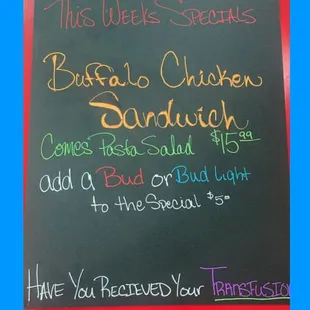 This Weeks Specials
Buffalo Chicken
Sandwich
Comes Pasta Salad $15.99
add a Bud or Bud Light
to the Special $5.00
Have You Recieved Your Transfusion